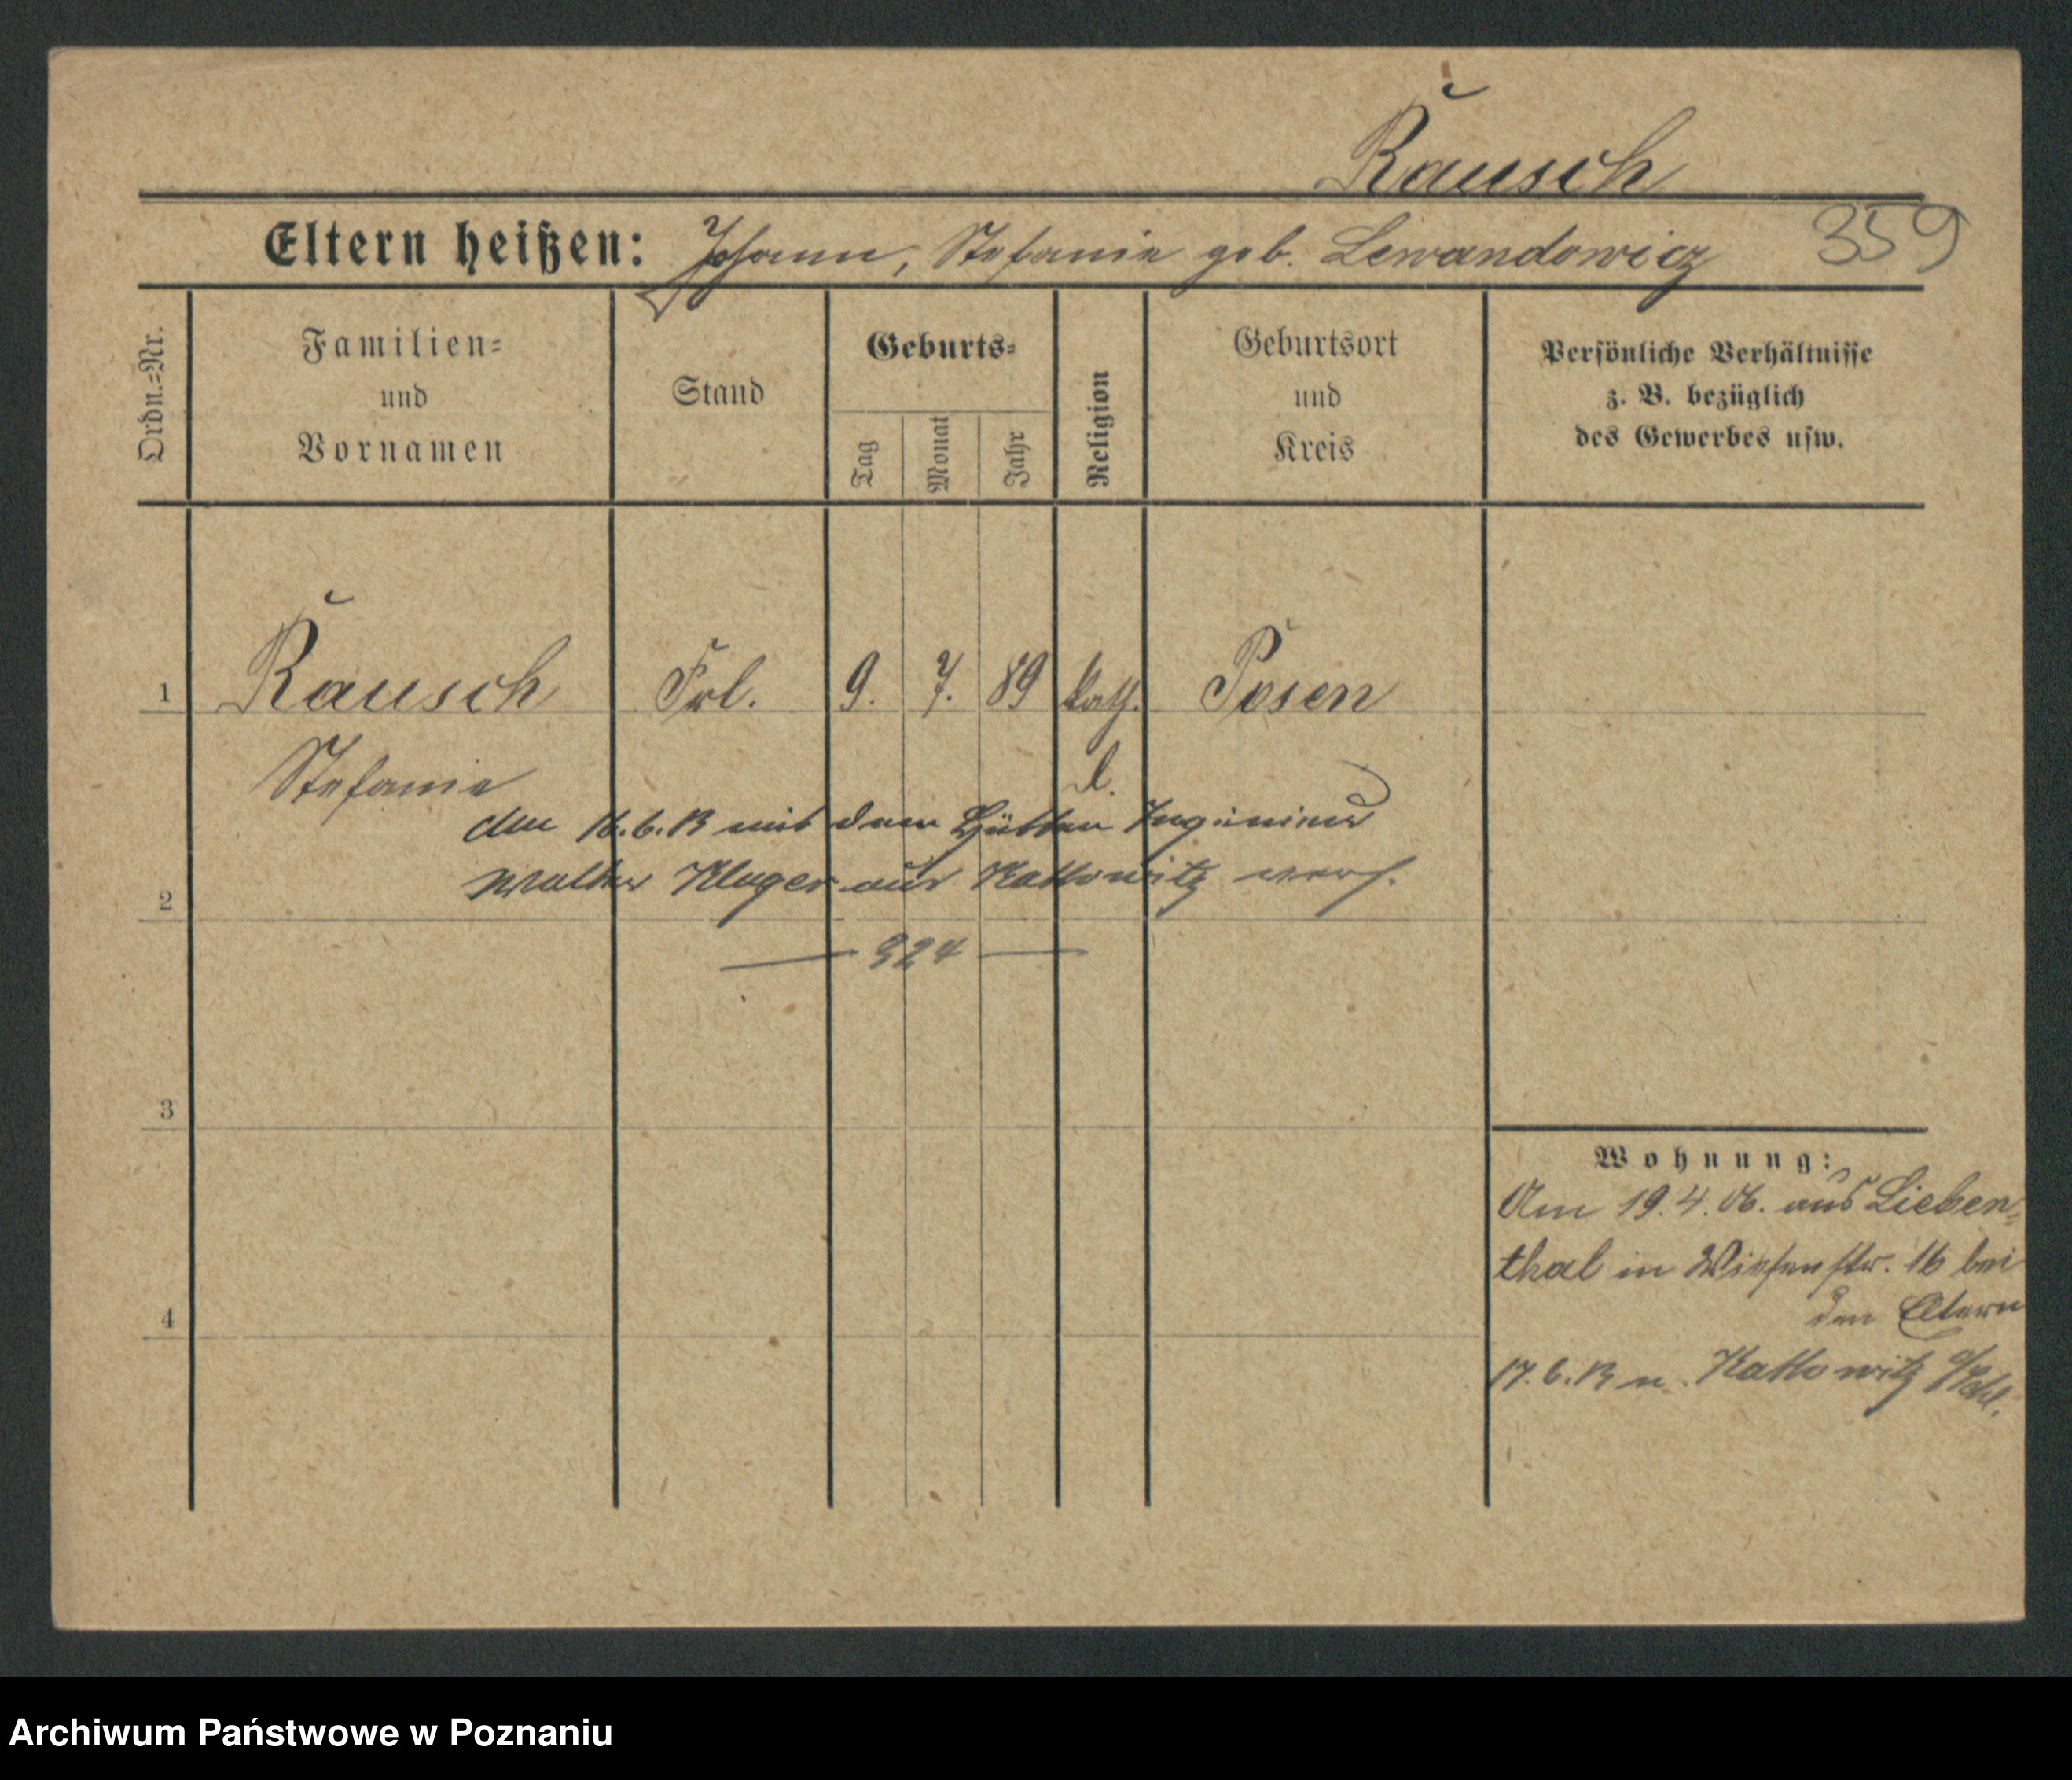 Rausch
Eltern heißen: Johann, Stefanie geb. Lewandowicz 359
Ordn.=Nr.
Familien=
und
Vornamen
Stand
Geburts=
Tag
Monat
Jahr
Religion
Geburtsort
und
Kreis
Persönliche Verhältnisse
z. B. bezüglich
des Gewerbes usw.
1 Rausch Frl. 9. 7. 89 kath. Posen
Stefanie l.
den 16.6.13 mit dem Hütten Ingenieur
Walther Kluger aus Kattowitz verh.
2
— 324 —
3
4
Wohnung:
Am 19.4.06. aus Lieben=
thal in Wiesenstr. 16 bei
den Eltern
17.6.13 n. Kattowitz
Archiwum Państwowe w Poznaniu